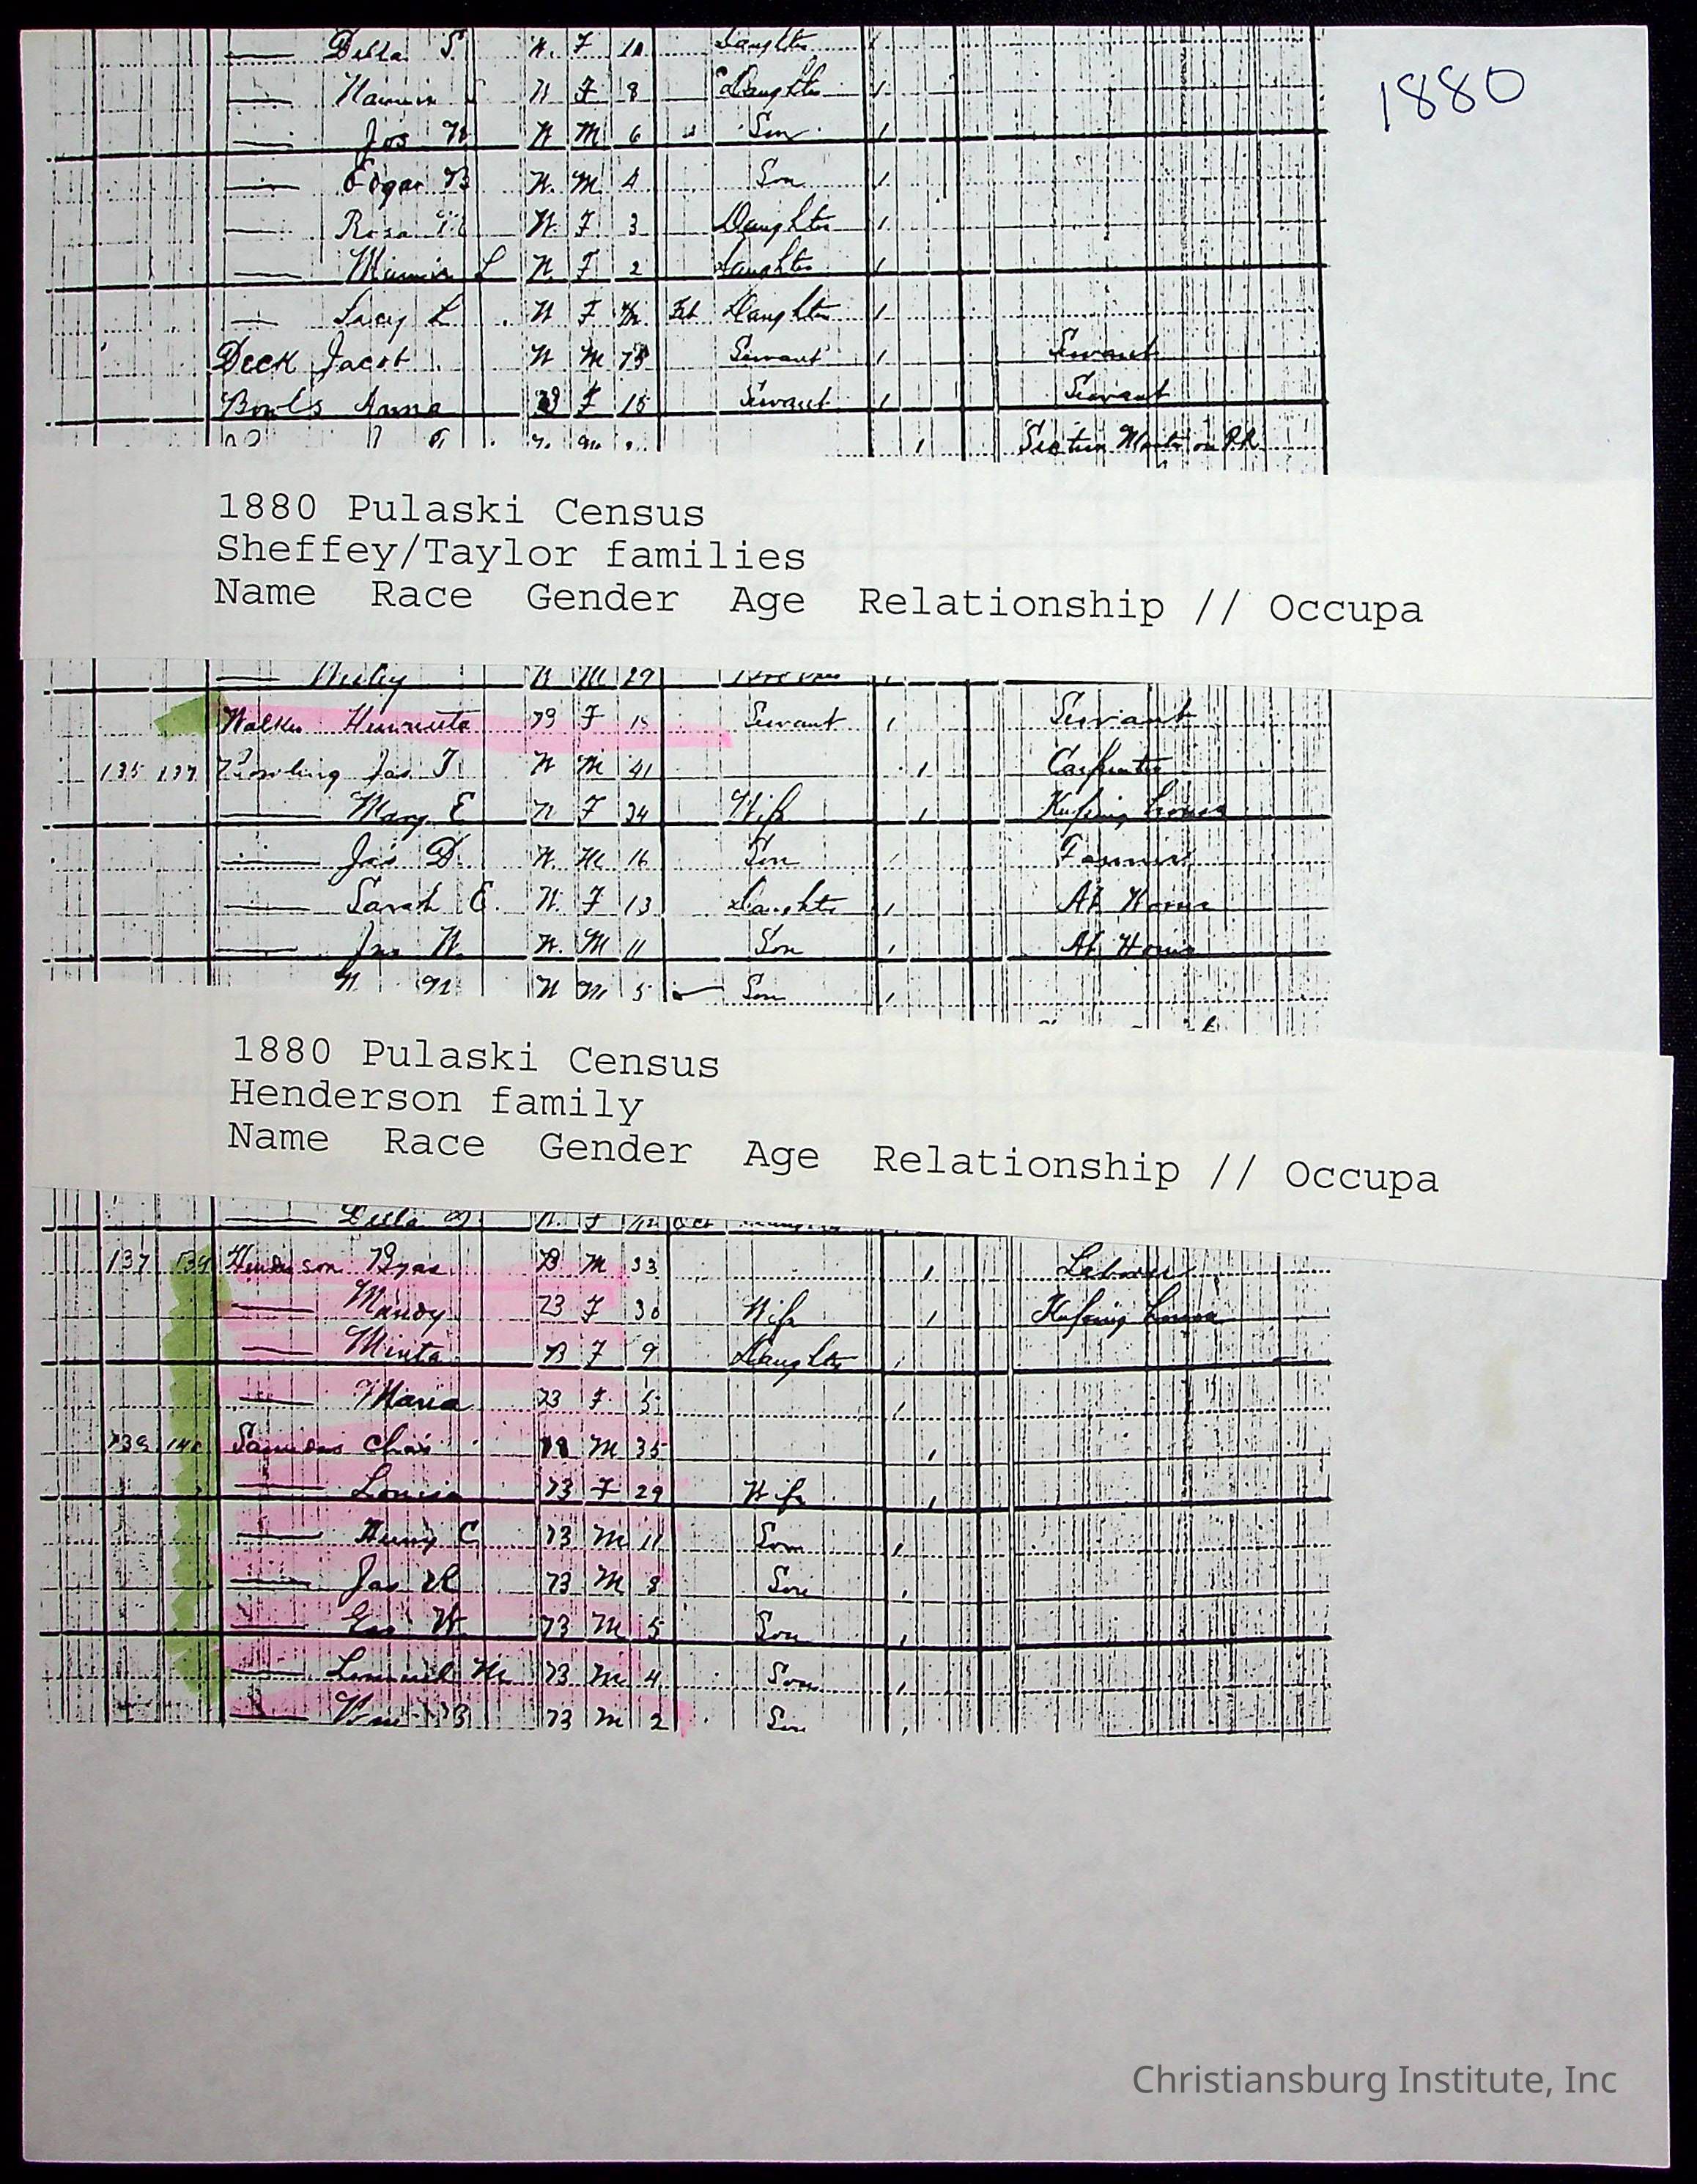 1880
Della S. W. F 10 Daughter 1
S W F 8 Daughter 1
Jos W W M 6 Son 1
Edgar B W. M 4 Son 1
Rosa W. F. 3 Daughter 1
L W. F 2 Daughter 1
Lucy L. W F Feb Daughter 1
Deck Jacob W M Servant 1 Servant
Bowls Anna B F 15 Servant 1 Servant
1 Section on R.R.
1880 Pulaski Census
Sheffey/Taylor families
Name Race Gender Age Relationship // Occupa
M 29
Walker Henrieta B F 15 Servant 1 Servant
135 137 Jas T. W M 41 1 Carpenter
Mary E W F 34 Wife 1 Keeping house
Jas D. W. M 16 Son 1
Sarah E. W. F 13 Daughter 1 At Home
Jno W. W. M 11 Son 1 At Home
W M 5 Son 1
1880 Pulaski Census
Henderson family
Name Race Gender Age Relationship // Occupa
Oct
137 139 Henderson B M 33 1 Laborer
Mandy B F 30 Wife 1 Keeping house
Minta B F 9 Daughter 1
Maria B F 5 1
140 Chas M 35 1
Louisa B F 29 Wife 1
Henry C B M 11 Son 1
Jas B M 8 Son 1
Geo W. B M 5 Son 1
Lemuel M. B M 4 Son 1
Wm B B M 2 Son 1
Christiansburg Institute, Inc